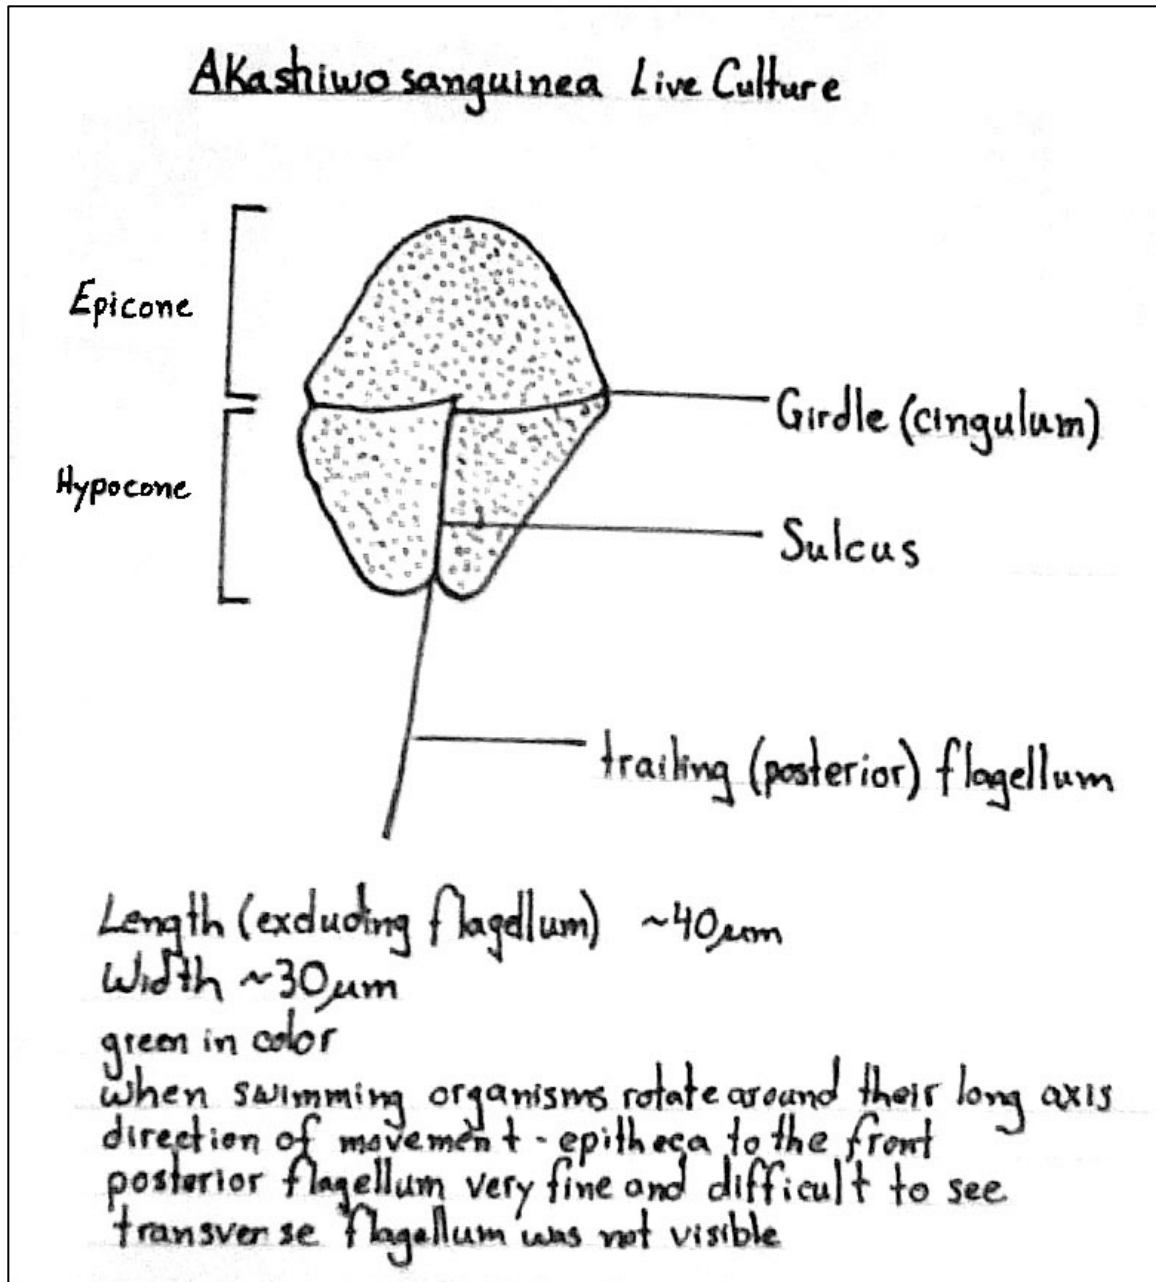 Akashiwo sanguinea Live Culture
Epicone
Girdle (cingulum)
Hypocone
Sulcus
trailing (posterior) flagellum
Length (excluding flagellum) ~40µm
Width ~30µm
green in color
when swimming organisms rotate around their long axis
direction of movement - epitheca to the front
posterior flagellum very fine and difficult to see
transverse flagellum was not visible